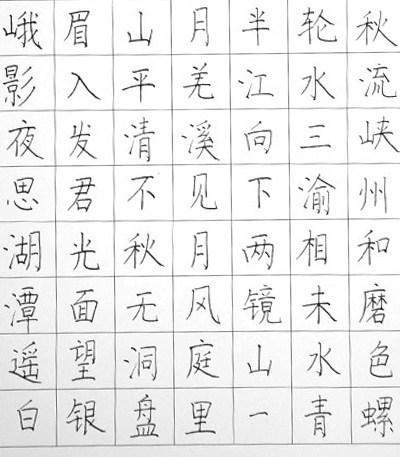 峨眉山月半轮秋
影入平羌江水流
夜发清溪向三峡
思君不见下渝州
湖光秋月两相和
潭面无风镜未磨
遥望洞庭山水色
白银盘里一青螺